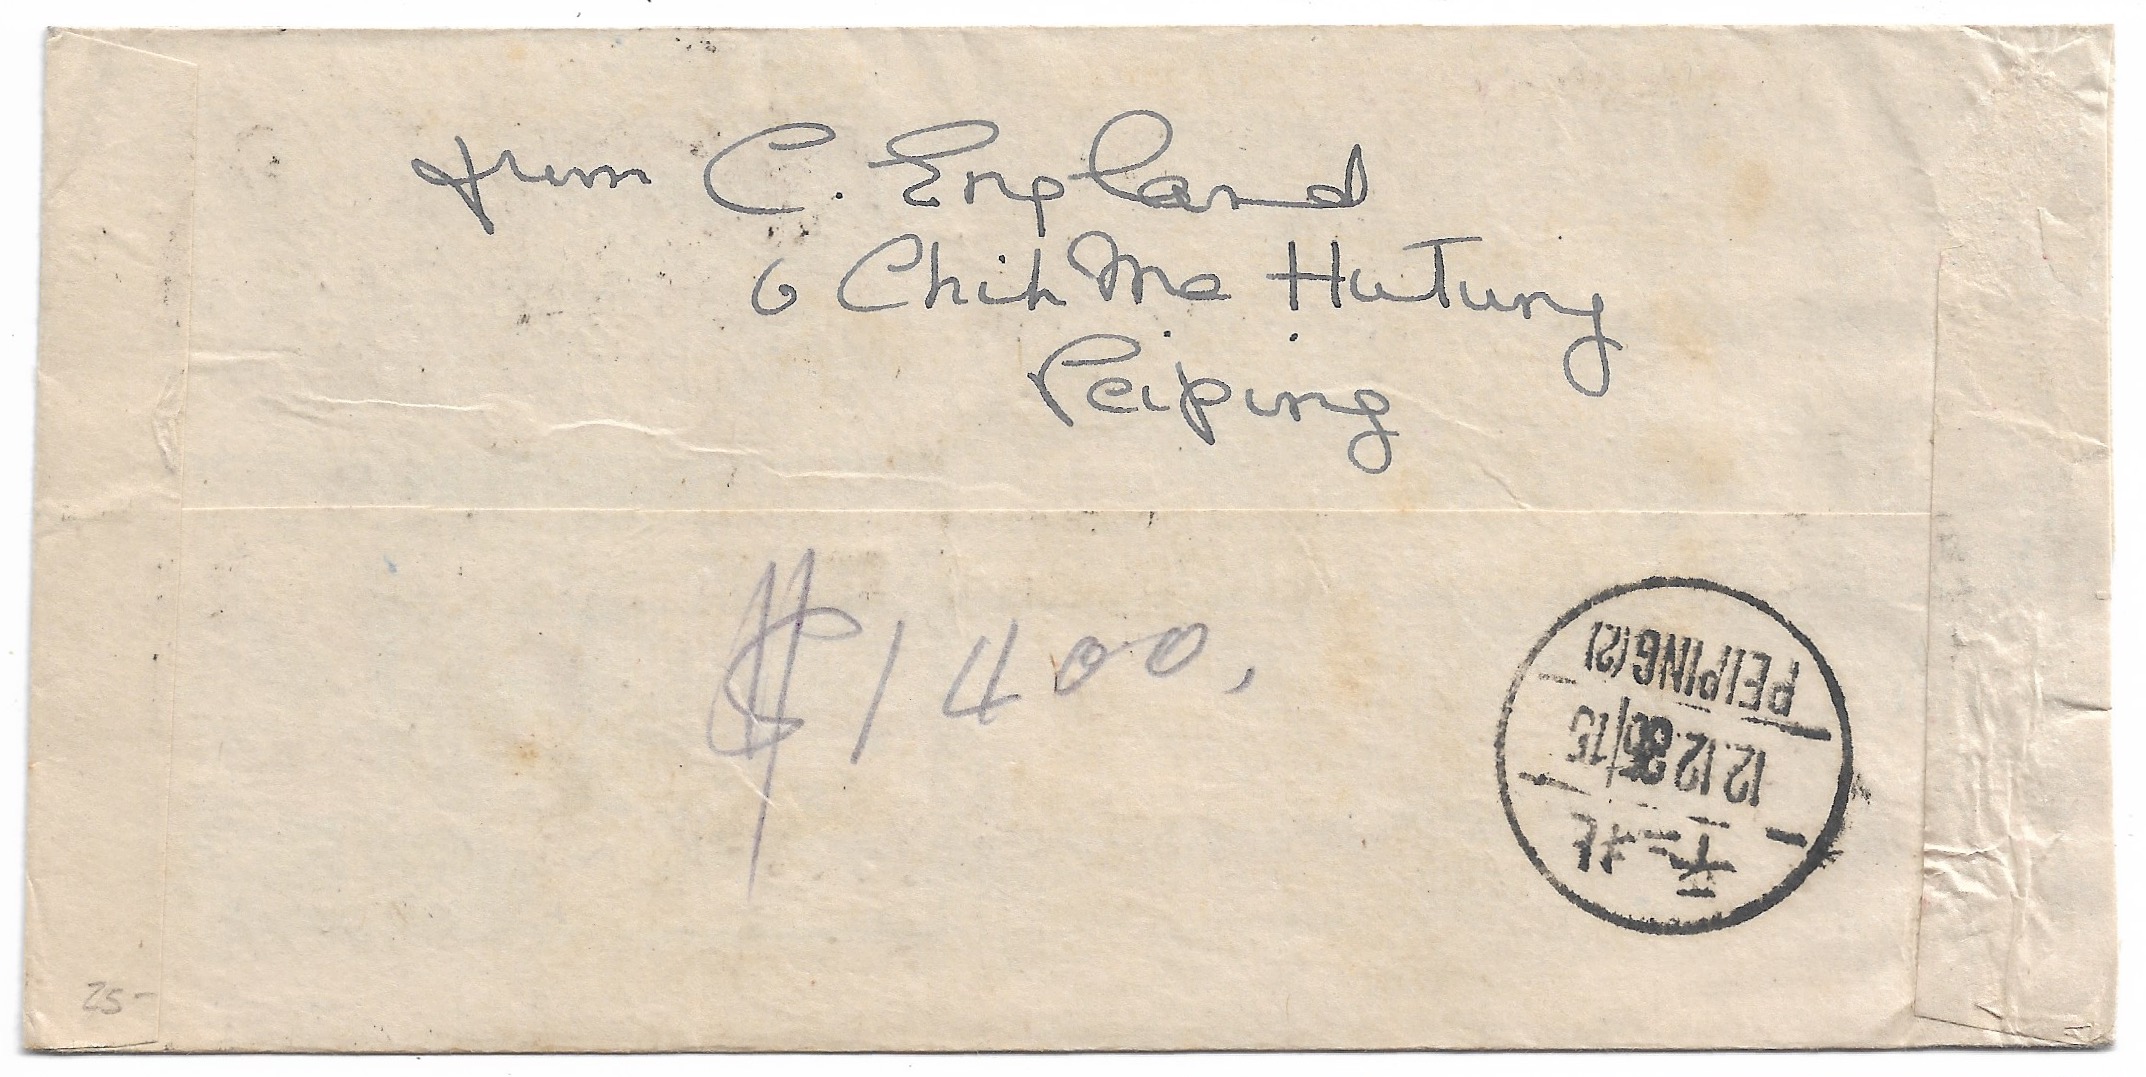 from C. England
6 Chih Ma Hutung
Peiping
$1400.
PEIPING (2)
25-